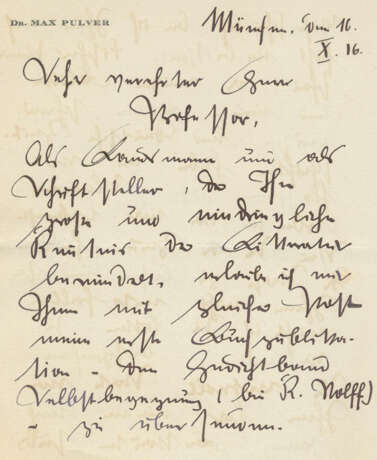 DR. MAX PULVER
München, den 16.
X. 16.
Sehr verehrter Herr
Professor,
Als Landsmann und als
Schriftsteller, der Ihre
grosse und eindringliche
Kenntnis der Litteratur
bewundert, erlaube ich mir
Ihnen mit gleicher Post
meine erste Buchpublika-
tion – den Gedichtband
Selbstbegegnung (bei K. Wolff)
– zu übersenden.